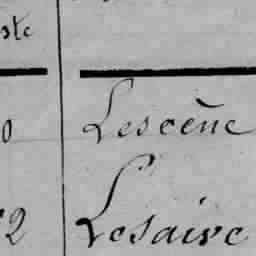 ste
0 Lescène
2 Lesaive